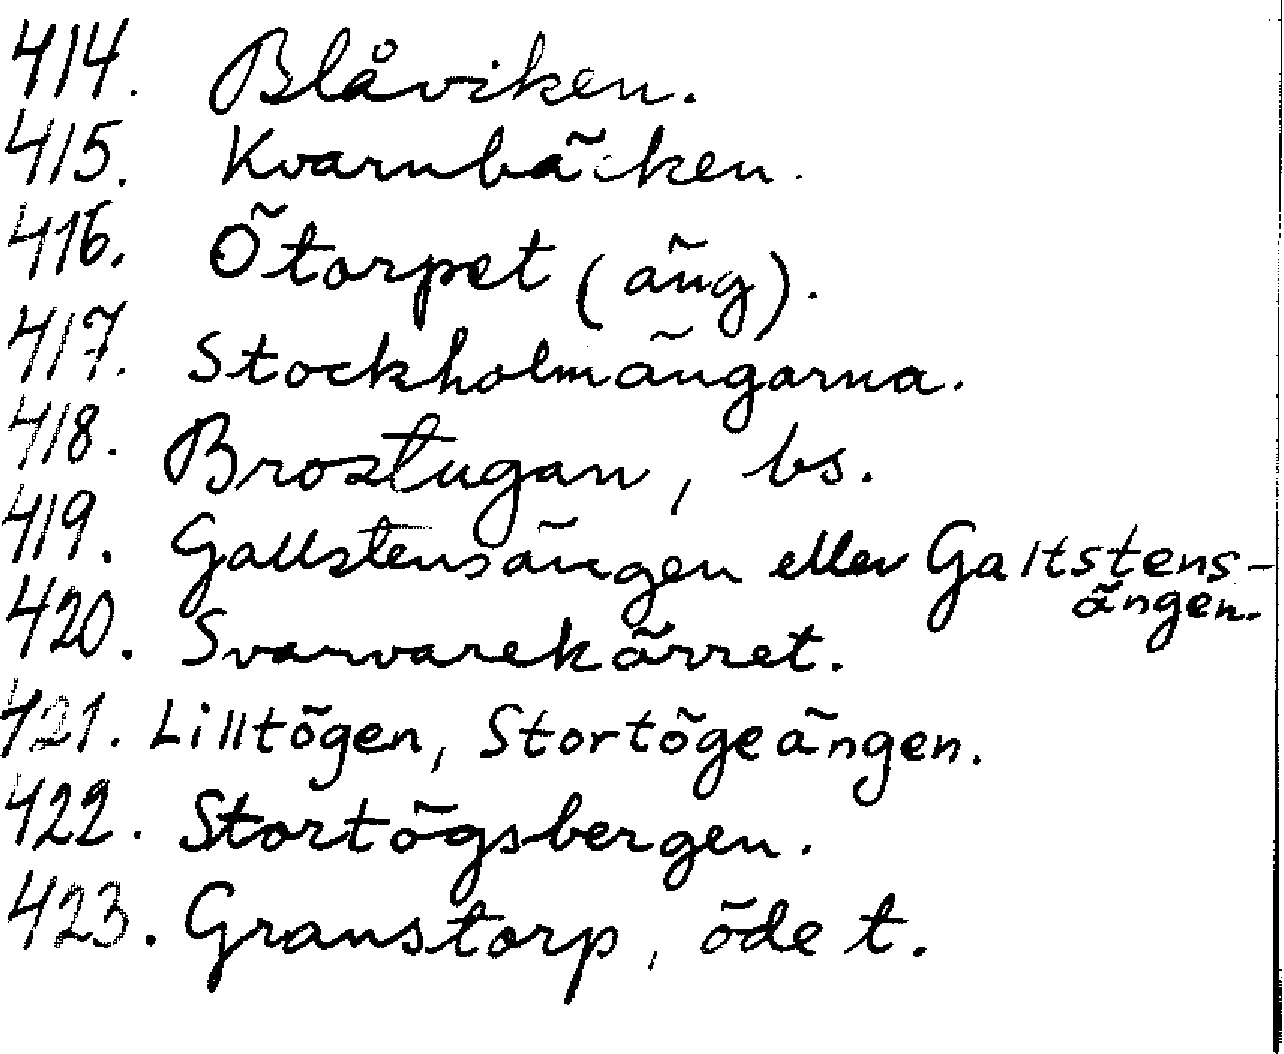 414. Blåviken.
415. Kvarnbäcken.
416. Ötorpet (äng).
417. Stockholmängarna.
418. Brostugan, bs.
419. Gallstensängen eller Galtstens-
ängen.
420. Svarvarekärret.
421. Lilltögen, Stortögeängen.
422. Stortögsbergen.
423. Granstorp, öde t.